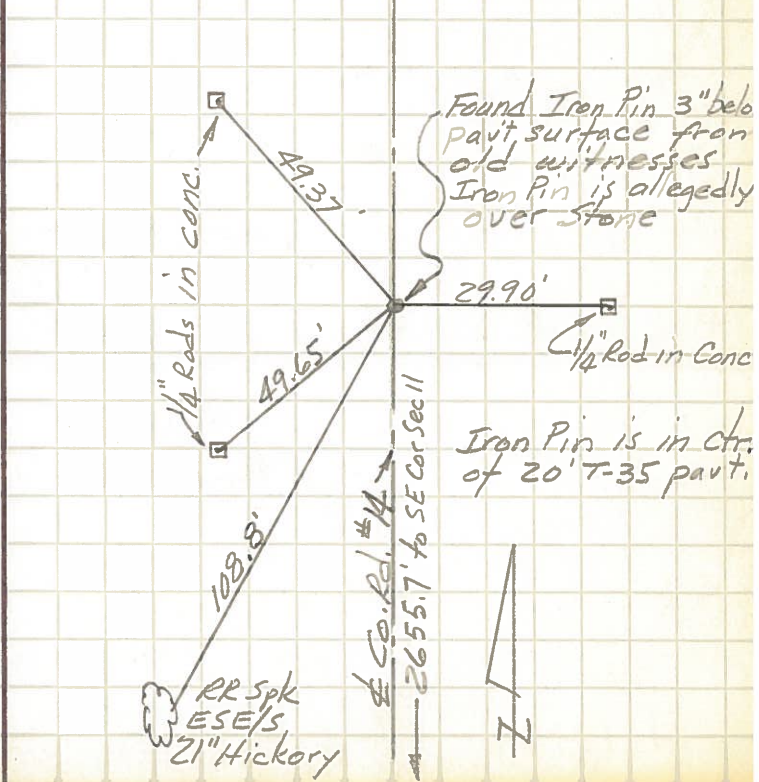 Found Iron Pin 3" belo
pav't surface from
old witnesses
Iron Pin is allegedly
over Stone
49.37'
1/4" Rods in conc.
29.90'
1/4" Rod in Conc
49.65'
Iron Pin is in ctr.
of 20' T-35 pavt.
108.8'
℄ Co. Rd. #14
2655.7' to SE Cor Sec 11
RR Spk
ESE/S
21" Hickory
N